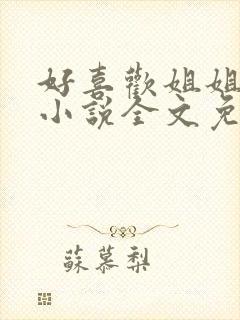 好喜歡姐姐
小說全文免
蘇慕梨